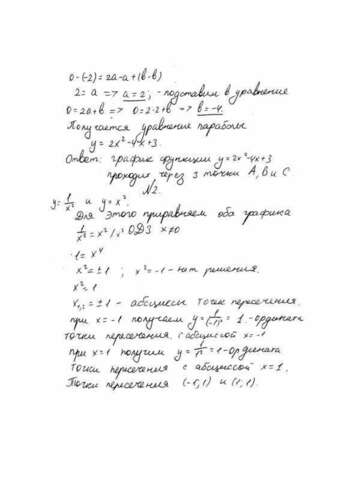 0-(-2)=2a-a+(b-b)
2=a => a=2; - подставим в уравнение
0=2a+b => 0=2·2+b => b=-4.
Получается уравнение параболы
y=2x²-4x+3.
Ответ: график функции y=2x²-4x+3
проходит через 3 точки A, B и C
N2.
y=1/x² и y=x².
Для этого приравняем оба графика
1/x²=x² /x² ОДЗ x≠0
1=x⁴
x²=±1 ; x²=-1 - нет решения.
x²=1
x₁,₂=±1 - абсциссы точек пересечения.
при x=-1 получаем y=1/(-1)²=1 - ордината
точки пересечения с абсциссой x=-1
при x=1 получим y=1/1²=1 - ордината
точки пересечения с абсциссой x=1.
Точки пересечения (-1;1) и (1;1).